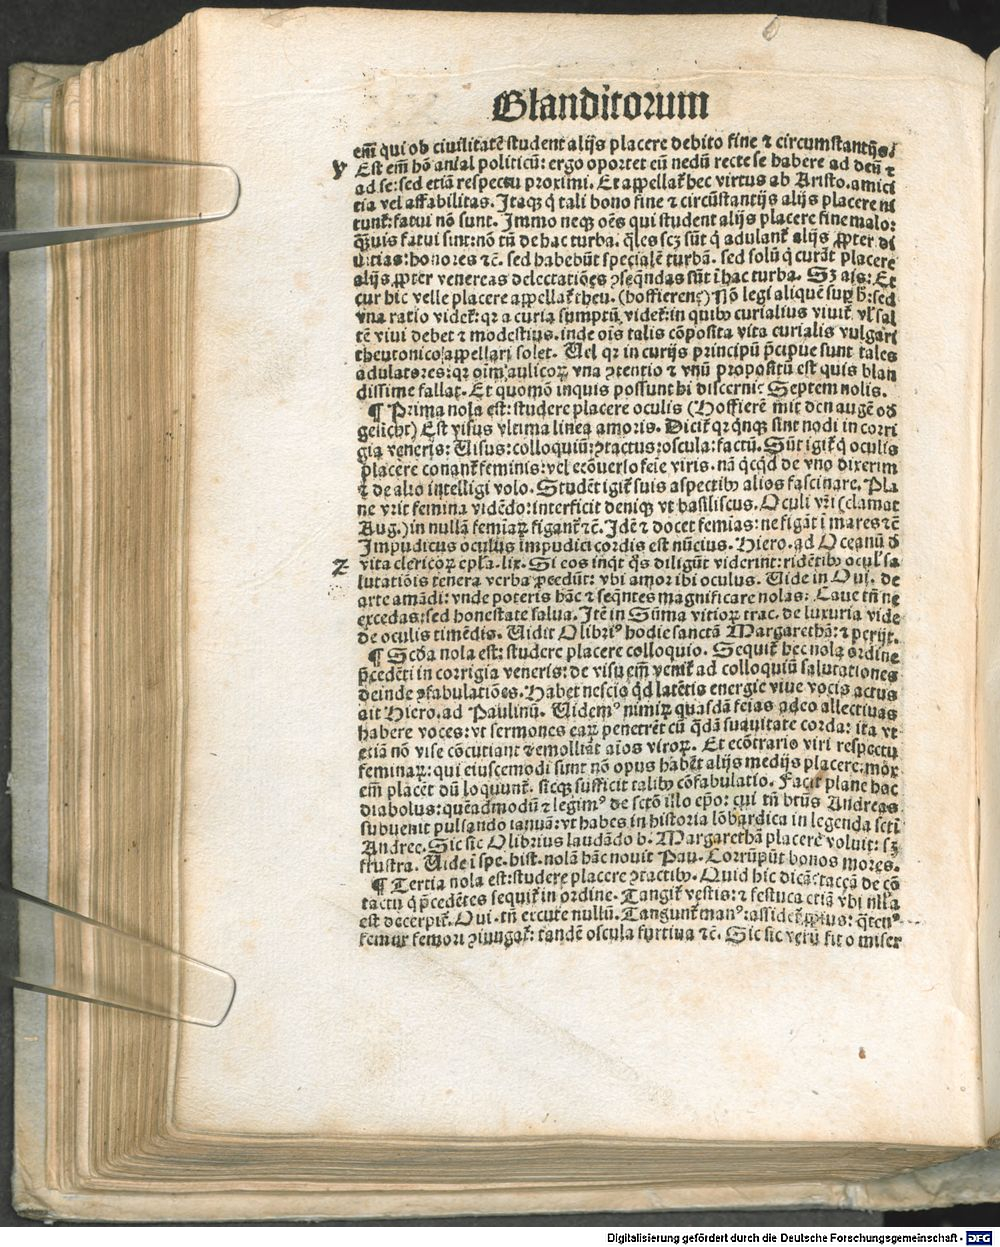 Blanditorum
em̄ qui ob ciuilitatē student alijs placere debito fine ⁊ circumstantijs.
Y
Est em̄ hō aīal politicū: ergo oportet eū nedū recte se habere ad deū ⁊
ad se: sed etiā respectu proximi. Et appellat̄ hec virtus ab Aristo. amici
tia vel affabilitas. Itaqꝫ q̇ tali bono fine ⁊ circūstantijs alijs placere ni
tunt̄: fatui nō sunt. Immo neqꝫ oēs qui student alijs placere fine malo:
q̄uis fatui sint: nō tn̄ de hac turba. q̄les scꝫ sūt q̇ adulant̄ alijs ꝓpter di
uitias: honores ⁊c̄. sed habebūt specialē turbā. sed solū q̇ curāt placere
alijs ꝓpter venereas delectatiōes ꝯseq̄ndas sūt ī hac turba. Sꝫ ais: Et
cur hic velle placere appellat̄ theu. (hoffierenꝫ) Nō legi aliquē suꝑ h̄: sed
vna ratio videt̄: qꝛ a curia sumptū. videt̄: in quibꝰ curialius viuit̄ vl̓ sal
tē viui debet ⁊ modestius. inde oīs talis cōposita vita curialis vulgari
theutonico appellari solet. Uel qꝛ in curijs principū p̄cipue sunt tales
adulatores: qꝛ oīm aulicoꝝ vna ꝯtentio ⁊ vnū propositū est quis blan
dissime fallat. Et quomō inquis possunt hi discerni: Septem nolis.
¶ Prima nola est: studere placere oculis (Hoffierē mit den augē oď
gesicht) Est visus vltima linea amoris. Dicit̄ qꝛ q̄nqꝫ sint nodi in corri
gia veneris: Uisus: colloquiū: ꝯtactus: oscula: factū. Sūt igit̄ q̇ oculis
placere conant̄ feminis: vel ecōuerso feīe viris. nā q̇cqd̓ de vno dixerim
⁊ de alio intelligi volo. Studēt igit̄ suis aspectibꝰ alios fascinare. Pla
ne vrit femina vidēdo: interficit deniqꝫ vt basiliscus. Oculi vr̄i (clamat
Aug.) in nullā femiaꝝ figant̄ ⁊c̄. Idē ⁊ docet femias: ne figāt ī mares ⁊c̄
Impudicus oculus impudici cordis est nūcius. Hiero. ad Oceanū ď
Z
vita clericoꝝ epl̓a. lix. Si eos inqt̓ q̇s diligūt viderint: ridētibꝰ ocul̓ sa
lutatiōis tenera verba ꝓcedūt: vbi amor ibi oculus. Uide in Oui. de
arte amādi: vnde poteris hāc ⁊ seq̄ntes magnificare nolas: Caue tn̄ ne
excedas: sed honestate salua. Itē in Sūma vitioꝝ trac. de luxuria vide
de oculis timēdis. Uidit Olibriꝰ hodie sanctā Margarethā: ⁊ perijt.
¶ Scďa nola est: studere placere colloquio. Sequit̄ hec nola ordine
p̄cedēti in corrigia veneris: de visu em̄ venit̄ ad colloquiū salutationes
deinde ꝯfabulatiōes. Habet nescio qd̓ latētis energie viue vocis actus
ait Hiero. ad Paulinū. Uidemꝰ nimiꝝ quasdā feīas adeo allectiuas
habere voces: vt sermones eaꝝ penetrēt cū q̇dā suauitate corda: ita vt
etiā nō vise cōcutiant ⁊ emolliāt aīos viroꝝ. Et ecōtrario viri respectu
feminaꝝ: qui eiuscemodi sunt nō opus habēt alijs medijs placere: mōx
em̄ placēt dū loquunt̄. sicqꝫ sufficit talibꝰ cōfabulatio. Facit plane hac
diabolus: quēadmodū ⁊ legimꝰ de sctō illo ep̄o: cui tn̄ bt̄us Andreas
subuenit pulsando ianuā: vt habes in historia lōbardica in legenda scti
Andree. Sic sic Olibrius laudādo b. Margarethā placere voluit: sꝫ
frustra. Uide ī spe. hist. nolā hāc nouit Pau. Corrūpūt bonos mores.
¶ Tertia nola est: studere placere ꝯtactibꝰ. Quid hic dicā: tacea de cō
tactu q̇ p̄cedētes sequit̄ in ordine. Tangit̄ vestis: ⁊ festuca etiā vbi nl̓la
est decerpit̄. Oui. tn̄ excute nullū. Tangunt̄ manꝰ: assidet̄ ꝓpius: q̄tenꝰ
femur femori ꝯiungat̄: tandē oscula furtiua ⁊c̄. Sic sic verū fit o miser
Digitalisierung gefördert durch die Deutsche Forschungsgemeinschaft - DFG